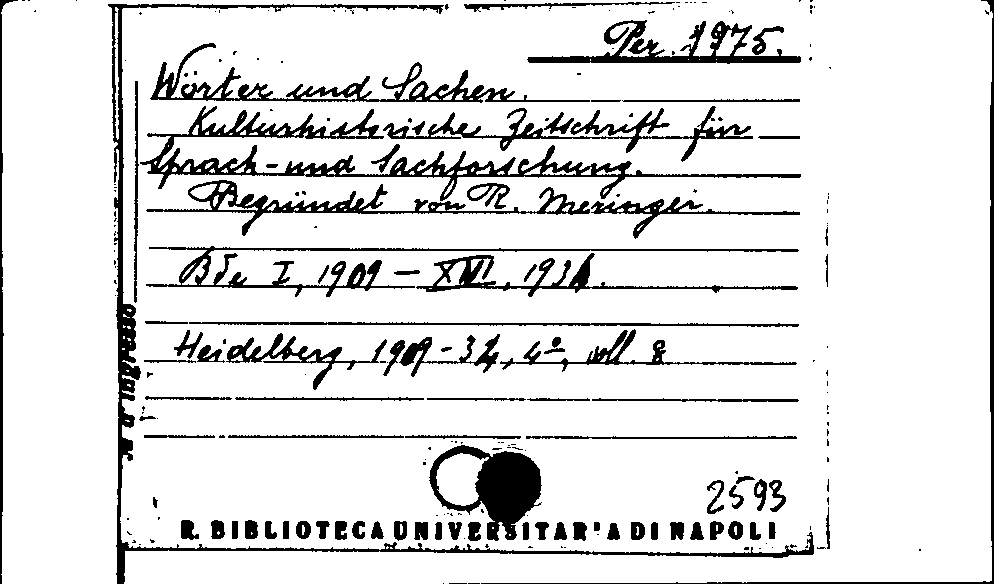 Per. 1975.
Wörter und Sachen.
Kulturhistorische Zeitschrift für
Sprach- und Sachforschung.
Begründet von R. Meringer.
Bde I, 1909 – XVI, 1934.
Heidelberg, 1909-34, 4º, voll. 8
N. d'ingresso
2593
R. BIBLIOTECA UNIVERSITARIA DI NAPOLI